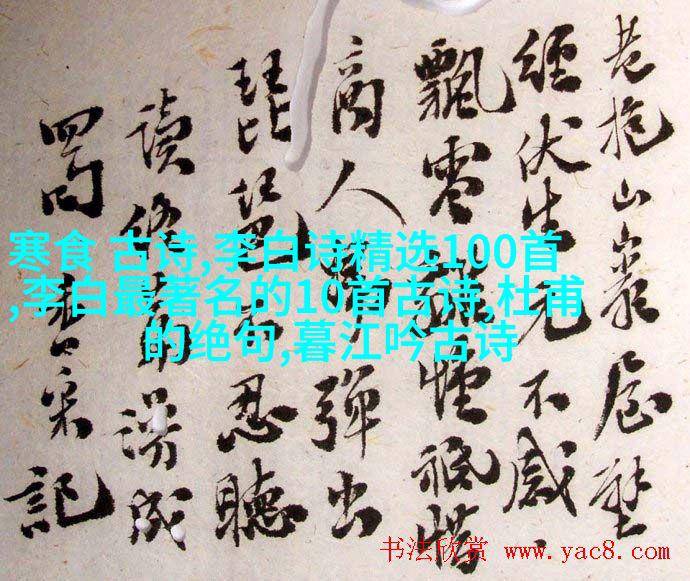 老抱山巖屋壁
經伏生元不感
飄零祗惜
商人婦彈出
琵琶忍聽
讀漫成
記
寒食 古诗,李白诗精选100首
,李白最著名的10首古诗,杜甫
的绝句,暮江吟古诗
书法欣赏 www.yac8.com